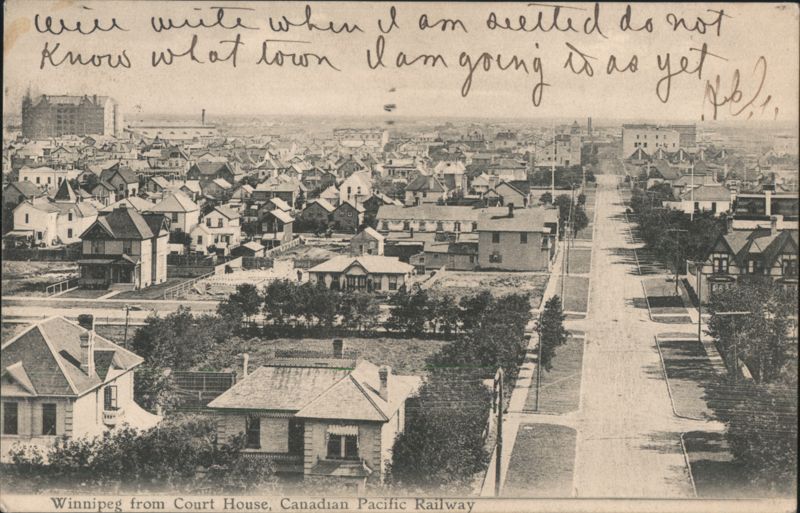 will write when I am settled do not
Know what town I am going to as yet
Winnipeg from Court House, Canadian Pacific Railway